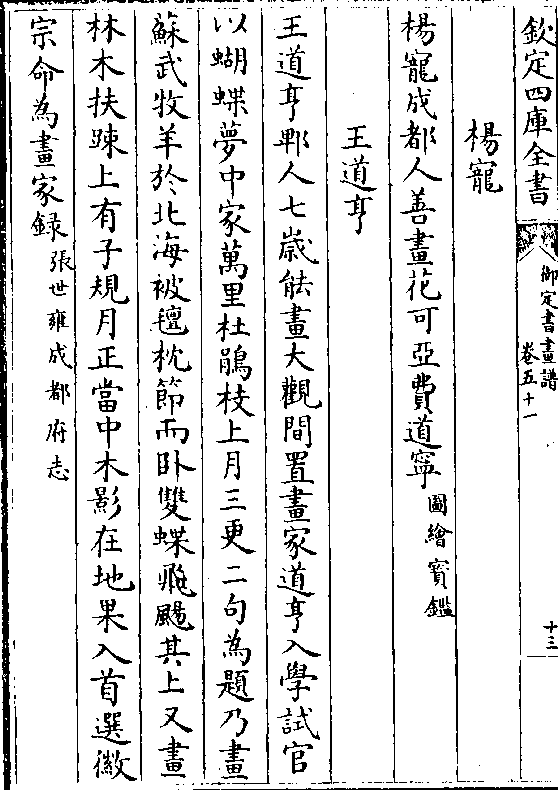 欽定四庫全書
御定書畫譜
卷五十一
十三
楊寵
楊寵成都人善畫花可亞費道寧圖繪寳鑑
王道亨
王道亨郫人七歳能畫大觀間置畫家道亨入學試官
以蝴蝶夢中家萬里杜鵑枝上月三更二句為題乃畫
蘇武牧羊於北海被氊枕節而卧雙蝶飛颺其上又畫
林木扶踈上有子規月正當中木影在地果入首選徽
宗命為畫家録張世雍成都府志